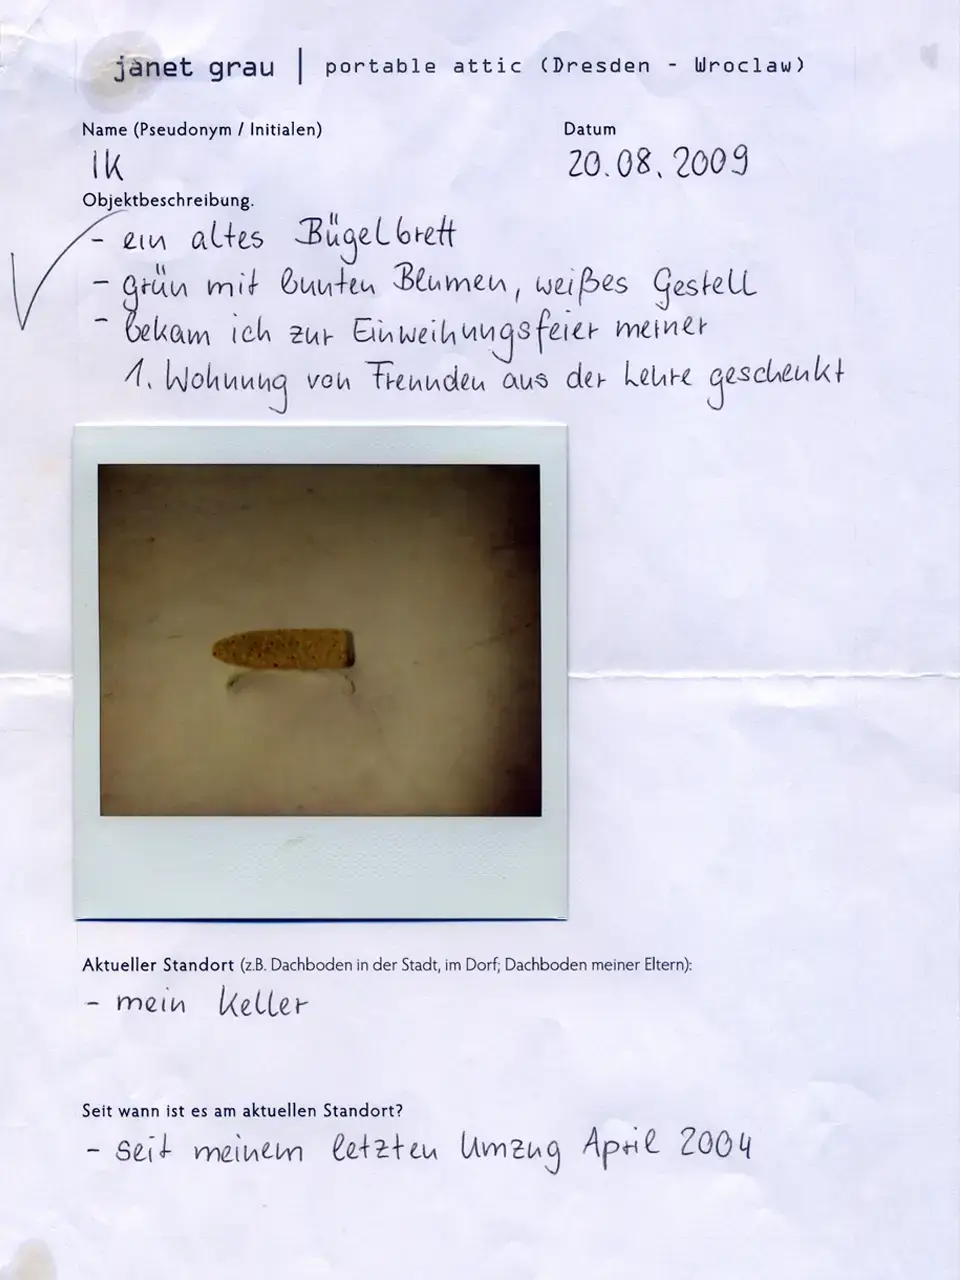 janet grau | portable attic (Dresden - Wroclaw)
Name (Pseudonym / Initialen)
Datum
IK
20.08.2009
Objektbeschreibung.
- ein altes Bügelbrett
- grün mit bunten Blumen, weißes Gestell
- bekam ich zur Einweihungsfeier meiner
1. Wohnung von Freunden aus der Lehre geschenkt
Aktueller Standort (z.B. Dachboden in der Stadt, im Dorf; Dachboden meiner Eltern):
- mein Keller
Seit wann ist es am aktuellen Standort?
- seit meinem letzten Umzug April 2004